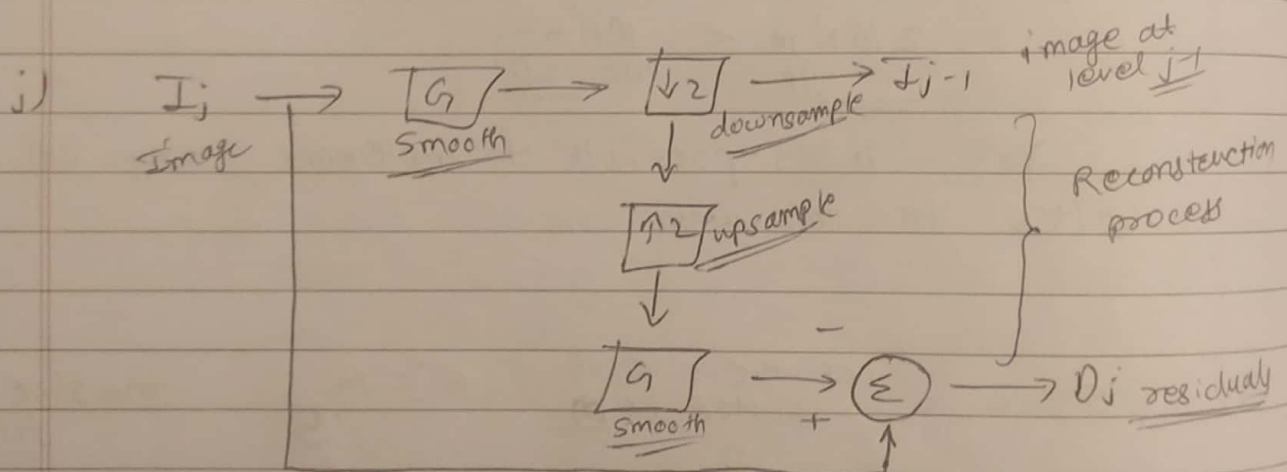 j) I_j → G → ↓2 → I_{j-1} image at
level j-1
Image
Smooth
downsample
↑2 upsample
Reconstruction
process
−
G → Σ → D_j residuals
Smooth
+